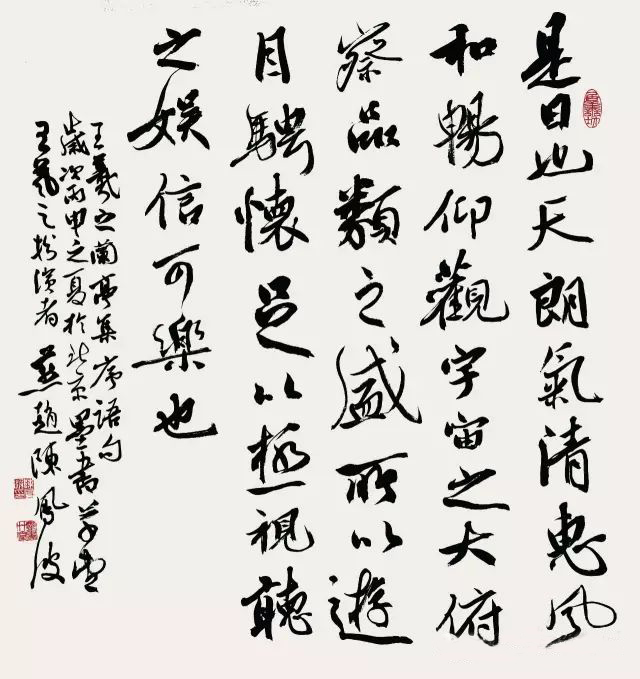 是日也天朗氣清惠風
和暢仰觀宇宙之大俯
察品類之盛所以遊
目騁懷足以極視聽
之娛信可樂也
王羲之蘭亭集序語句
歲次丙申之夏於北京墨書草堂
王羲之扮演者燕趙陳鳳波